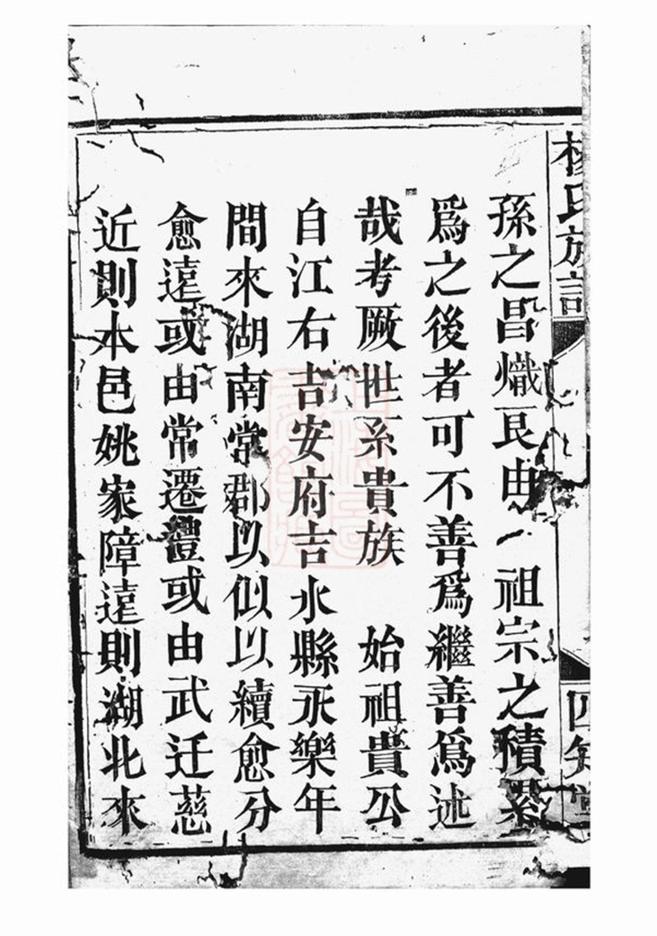 楊氏族譜
四知堂
孫之昌熾良由祖宗之積累
爲之後者可不善爲繼善爲述
哉考厥世系貴族 始祖貴公
自江右吉安府吉水縣永樂年
間來湖南常郡以似以續愈分
愈遠或由常遷澧或由武迁慈
近則本邑姚家障遠則湖北來